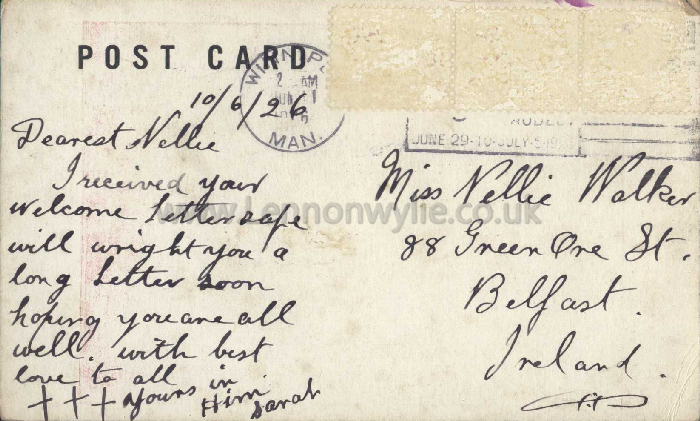 POST CARD
WINNIP
2 AM
JUN 1
MAN.
JUNE 29-10-JULY-5-19
10/6/26
Dearest Nellie
I received your
welcome letter safe
will wright you a
long letter soon
hoping you are all
well. with best
love to all
+ + + yours in Him Sarah
Miss Nellie Walker
88 Green Ore St.
Belfast.
Ireland.
www.Lennonwylie.co.uk